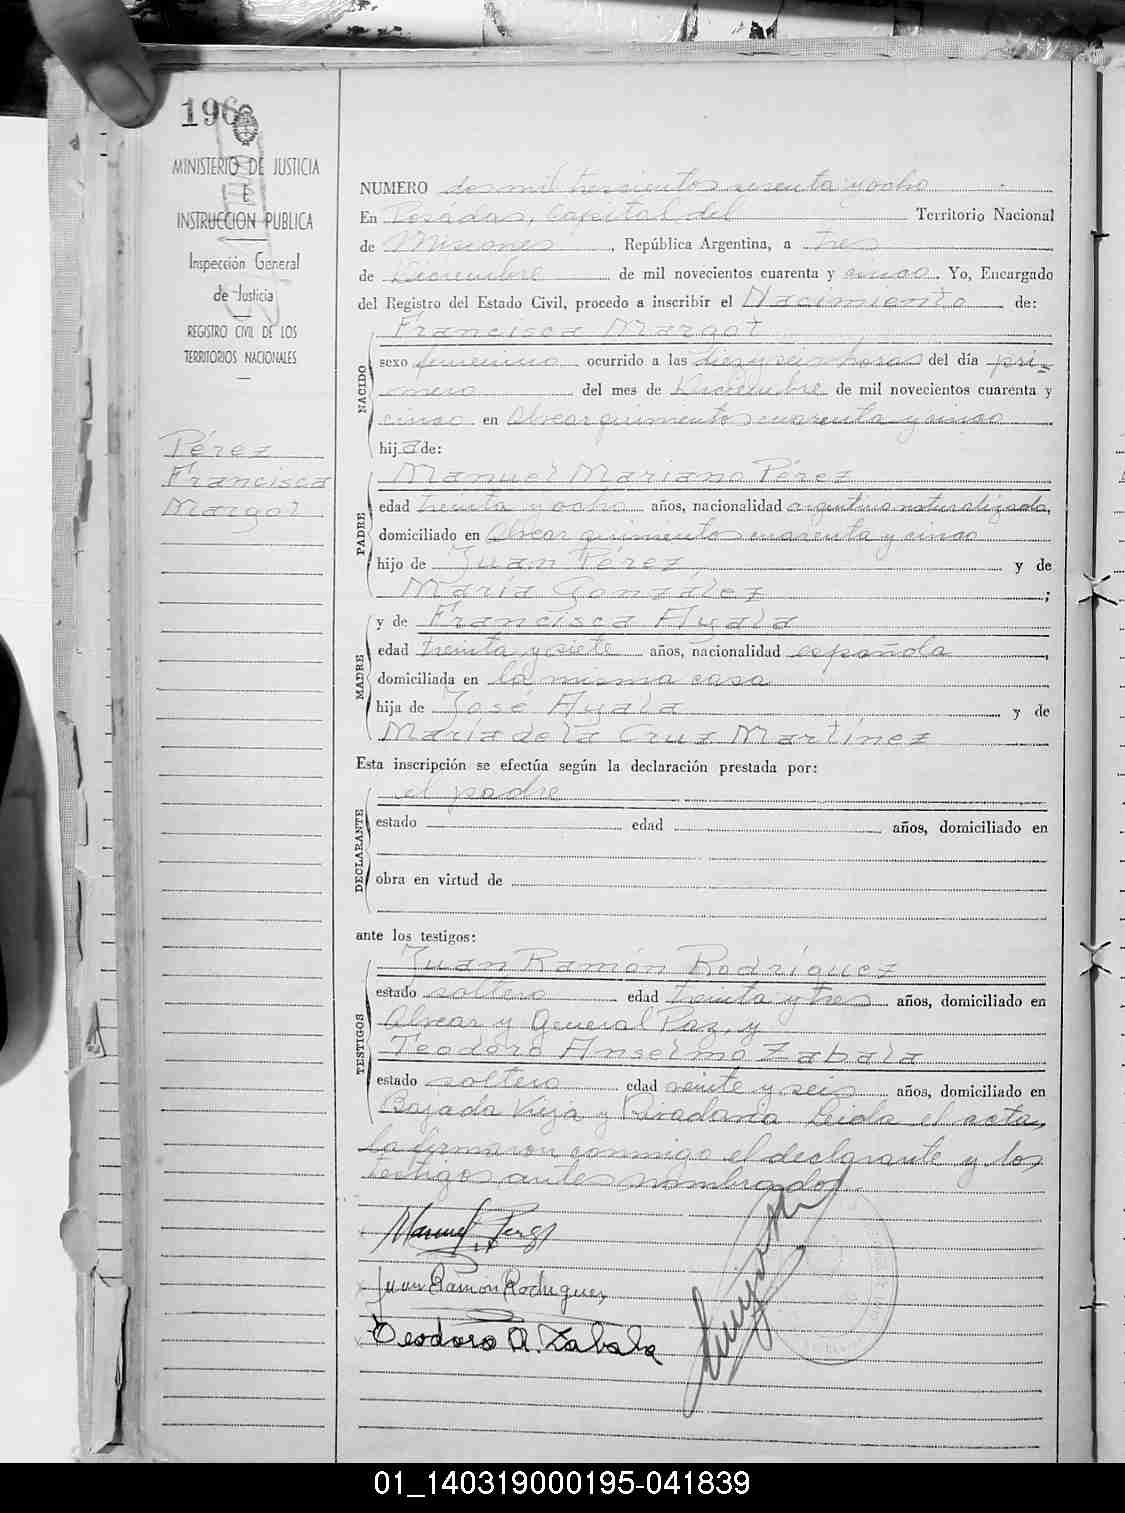 196
MINISTERIO DE JUSTICIA
E
INSTRUCCION PUBLICA
Inspección General
de Justicia
REGISTRO CIVIL DE LOS
TERRITORIOS NACIONALES
Pérez
Francisca
Margot
NUMERO dos mil trescientos sesenta y ocho
En Posadas, Capital del Territorio Nacional
de Misiones, República Argentina, a tres
de Diciembre de mil novecientos cuarenta y cinco. Yo, Encargado
del Registro del Estado Civil, procedo a inscribir el Nacimiento de:
NACIDO
Francisca Margot
sexo femenino ocurrido a las diez y seis horas del día pri-
mero del mes de Diciembre de mil novecientos cuarenta y
cinco en Alvear quinientos cuarenta y cinco
hija de:
PADRE
Manuel Mariano Pérez
edad treinta y ocho años, nacionalidad argentino naturalizado,
domiciliado en Alvear quinientos cuarenta y cinco
hijo de Juan Pérez y de
María González ;
MADRE
y de Francisca Ayala
edad treinta y siete años, nacionalidad española,
domiciliada en la misma casa
hija de José Ayala y de
María de la Cruz Martínez
Esta inscripción se efectúa según la declaración prestada por:
DECLARANTE
el padre
estado edad años, domiciliado en
obra en virtud de
ante los testigos:
TESTIGOS
Juan Ramón Rodríguez
estado soltero edad treinta y tres años, domiciliado en
Alvear y General Paz, y
Teodoro Anselmo Zabala
estado soltero edad veinte y seis años, domiciliado en
Bajada Vieja y Rivadavia Leida el acta,
la firmaron conmigo el declarante y los
testigos antes nombrados.
Manuel Perez
Juan Ramón Rodriguez
Teodoro A. Zabala
01_140319000195-041839